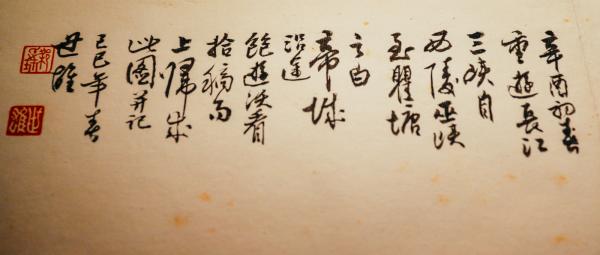 辛酉初春
重遊長江
三峽自
西陵巫峽
至瞿塘
之白
帝城
沿途
飽遊飫看
拾稿而
上歸成
此圖并記
己巳年春
世雄